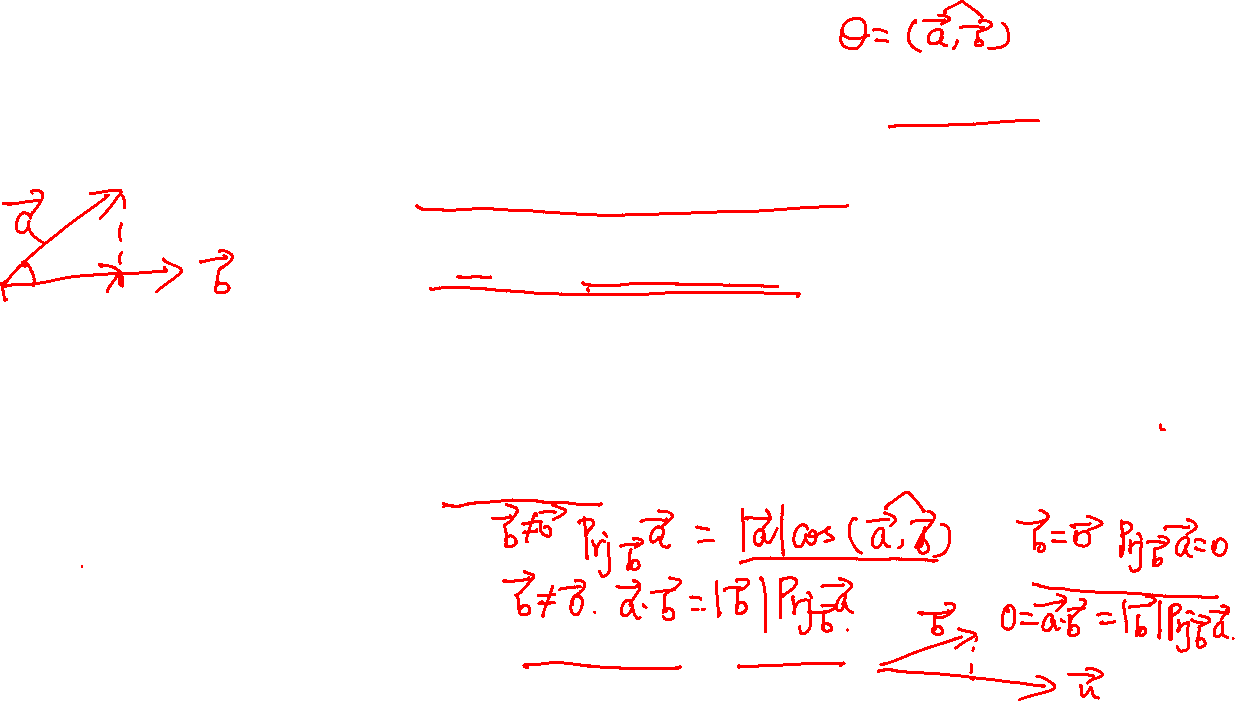 θ = (a⃗, b⃗)
a⃗
b⃗
b⃗ ≠ 0⃗ Prj_b⃗ a⃗ = |a⃗| cos (a⃗, b⃗) b⃗ = 0⃗ Prj_b⃗ a⃗ = 0
b⃗ ≠ 0⃗. a⃗·b⃗ = |b⃗| Prj_b⃗ a⃗. b⃗ 0 = a⃗·b⃗ = |b⃗| Prj_b⃗ a⃗.
u⃗